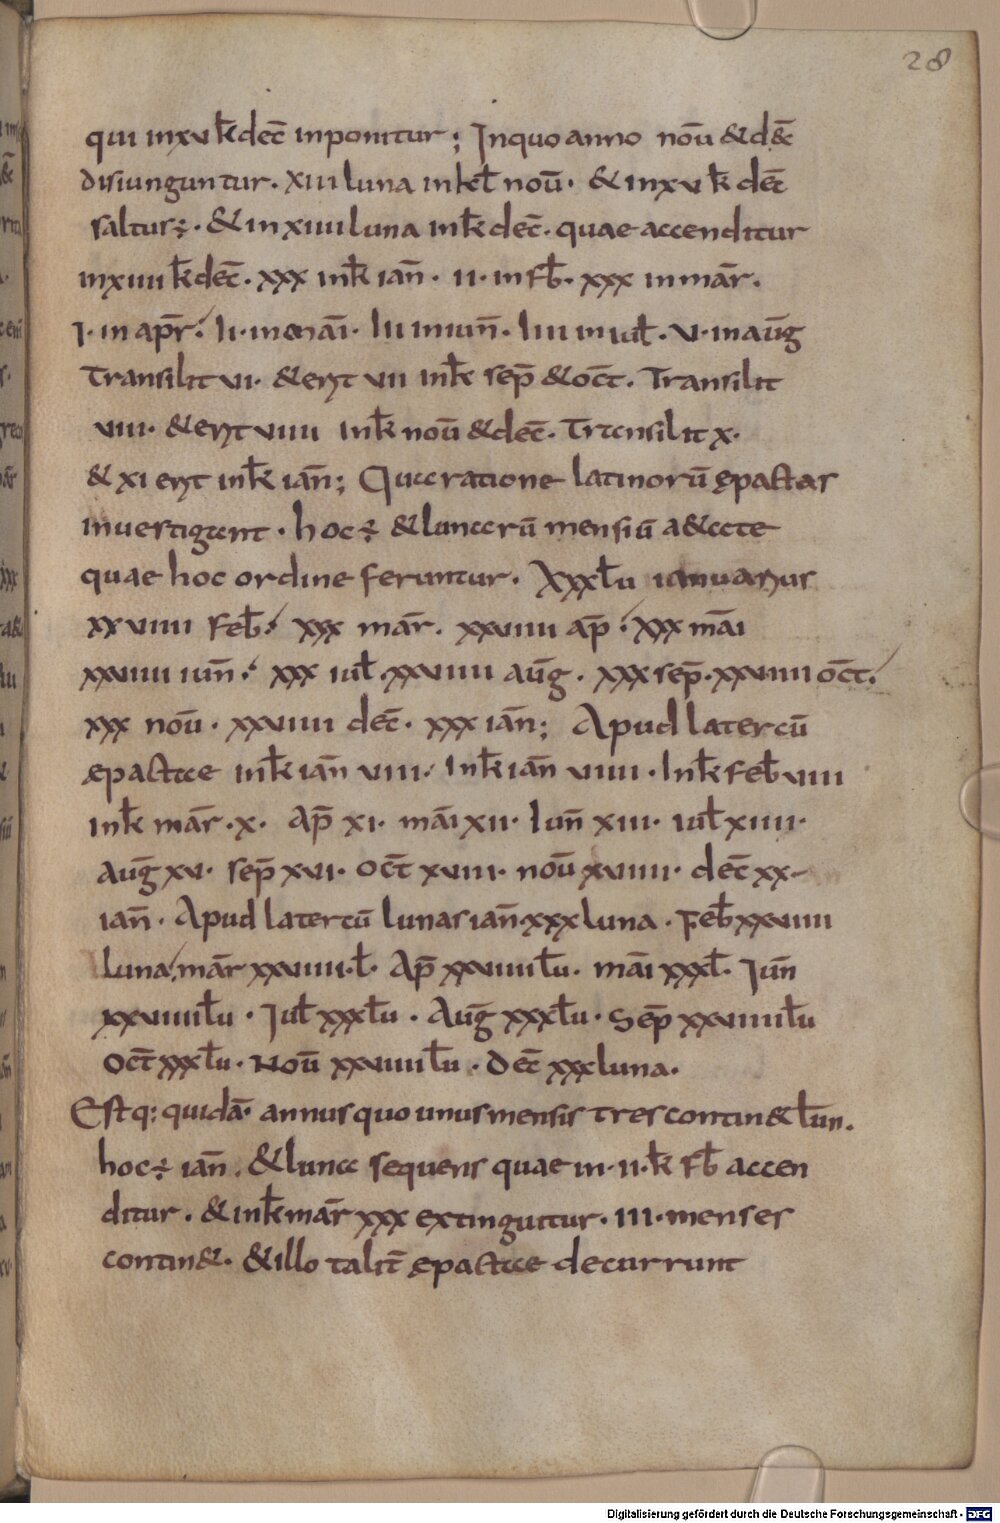 28
qui inxv k̄ dec̄ inponitur; In quo anno nou̅ & dec̄
disiunguntur. XIII luna in kl̄ nou̅. & in xv k̄ dec̄
saltus ÷. & in xiiii luna in k̄ dec̄. quae accenditur
in xiiii k̄ dec̄. xxx in k̄ ian̄. ii. in fb̄. xxx in mar̄.
I. in apr̄. ii. in mai̅. iii in iun̄. iiii in iul̄. v. in aug̅
Transilit vi. & erit vii in k̄ sep̄ & oct̄. Transilit
viii. & erit viiii in k̄ nou̅ & dec̄. Transilit x.
& xi erit in k̄ ian̄; Qua ratione latinorū epactas
inuestigant. hoc ÷ & lunarū mensiū aetate
quae hoc ordine feruntur. XXX lu̅ ianuarius
xxviiii feb̄. xxx mar̄. xxviiii ap̄. xxx mai̅
xxviiii iun̄. xxx iul̄. xxviiii aug̅. xxx sep̄. xxviiii oct̄.
xxx nou̅. xxviiii dec̄. xxx ian̄; Apud latercū
epactae in k̄ ian̄ viii. In k̄ ian̄ viiii. In k̄ feb̄ viiii
in k̄ mar̄. x. Ap̄ xi. mai̅ xii. Iun̄ xiii. iul̄ xiiii.
Aug̅ xv. sep̄ xvi. oct̄ xviii. nou̅ xviiii. dec̄ xx.
ian̄. Apud latercū lunas ian̄. xxx luna. Feb̄ xxviiii
luna, mar̄ xxviiii. l̄. Ap̄ xxviiii l̄u. mai̅ xxx l̄. Iun̄
xxviiii l̄u. Iul̄ xxx l̄u. Aug̅ xxx l̄u. Sep̄ xxviiii l̄u
Oct̄ xxx l̄u. Nou̅ xxviiii l̄u. Dec̄ xxx luna.
Estq: quidā. annus quo unus mensis tres contin& l̄un.
hoc ÷ ian̄. & luna sequens quae in. ii. k̄ fb̄ accen
ditur. & in k̄ mar̄ xxx extinguitur. III. menses
contin&. & illo talit̄ epactae decurrunt
Digitalisierung gefördert durch die Deutsche Forschungsgemeinschaft - DFG